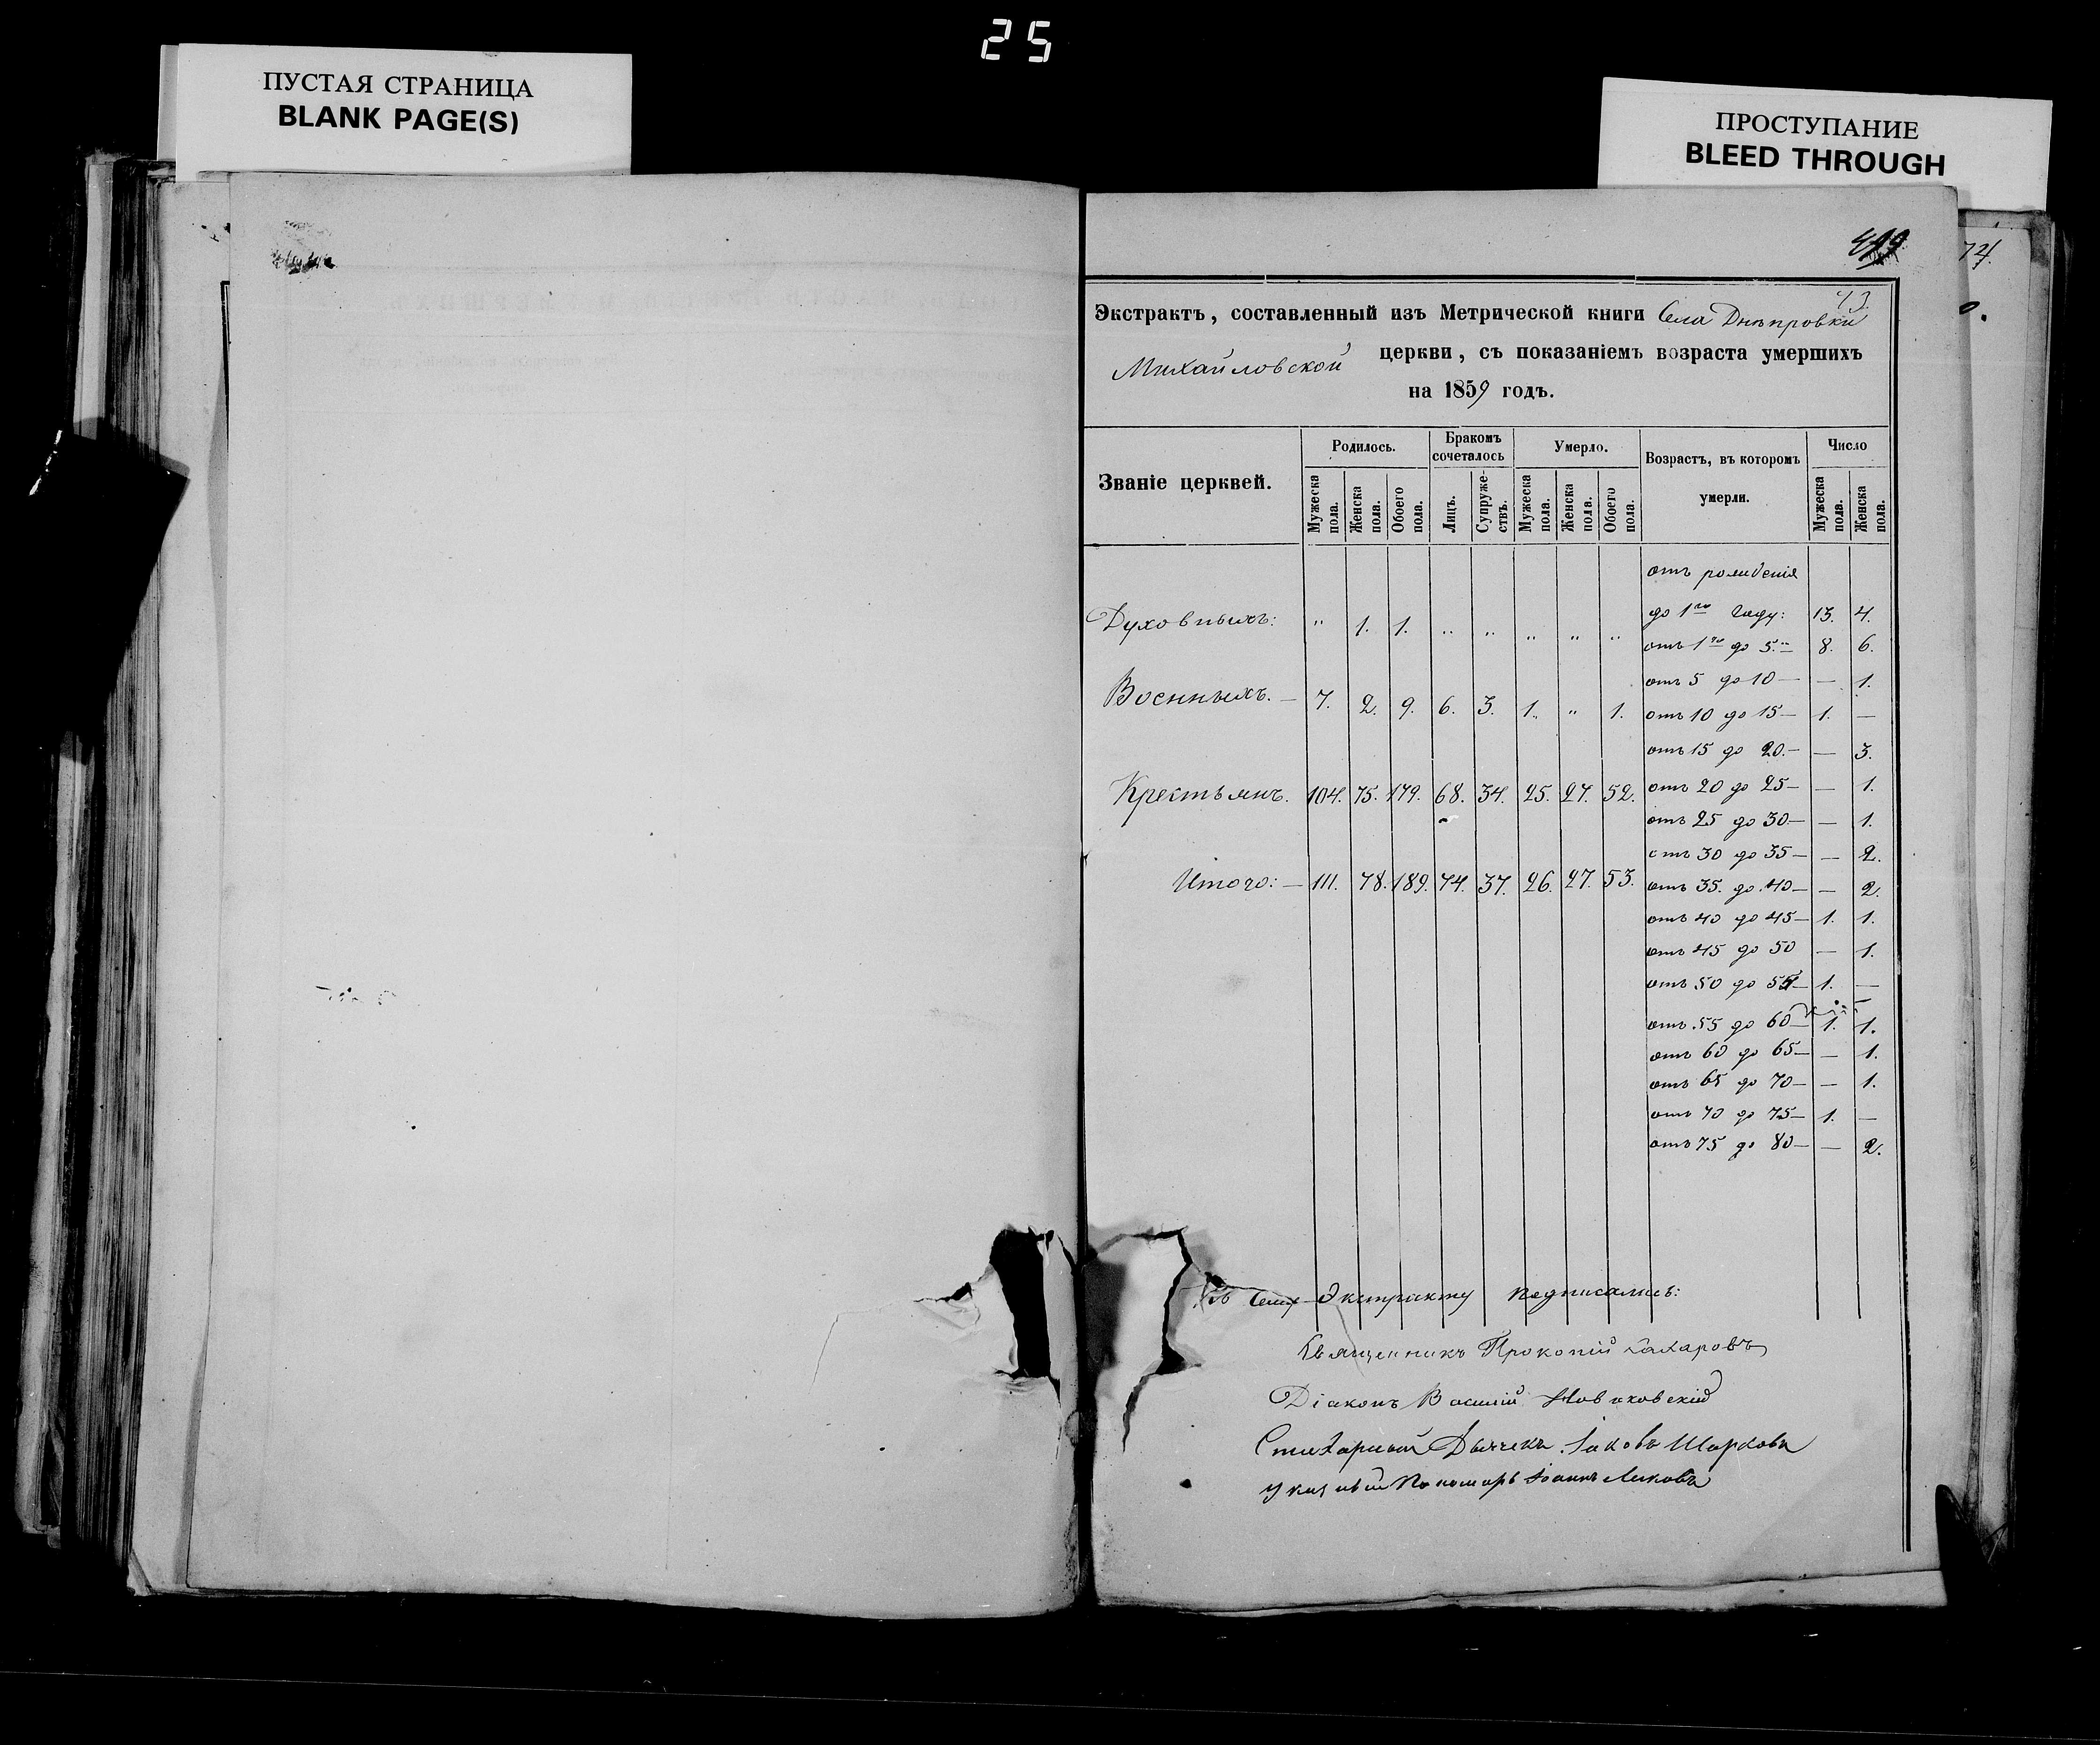 25
ПУСТАЯ СТРАНИЦА
BLANK PAGE(S)
ПРОСТУПАНИЕ
BLEED THROUGH
74.
73.
Экстрактъ, составленный изъ Метрической книги Села Днѣпровки
Михайловской церкви, съ показаніемъ возраста умершихъ
на 1859 годъ.
Званіе церквей. Родилось. Бракомъ сочеталось Умерло. Возрастъ, въ которомъ умерли. Число
Мужеска пола. Женска пола. Обоего пола. Лицъ. Супружествъ. Мужеска пола. Женска пола. Обоего пола. Мужеска пола. Женска пола.
отъ рожденія
до 1го году: 13. 4.
Духовныхъ: " 1. 1. " " " " "
отъ 1го до 5. 8. 6.
отъ 5 до 10 — — 1.
Военныхъ. — 7. 2. 9. 6. 3. 1. " 1.
отъ 10 до 15 — 1. —
отъ 15 до 20. — — 3.
Крестьянъ. 104. 75. 179. 68. 34. 25. 27. 52.
отъ 20 до 25 — — 1.
отъ 25 до 30 — — 1.
отъ 30 до 35 — — 2.
Итого: — 111. 78. 189. 74. 37. 26. 27. 53.
отъ 35. до 40 — — 2.
отъ 40 до 45 — 1. 1.
отъ 45 до 50 — 1.
отъ 50 до 55 — 1. —
отъ 55 до 60 — 1. 1.
отъ 60 до 65 — — 1.
отъ 65 до 70 — — 1.
отъ 70 до 75 — 1. —
отъ 75 до 80 — — 2.
Къ сему Экстракту подписались:
Священникъ Прокопій Захаровъ
Діаконъ Василій
Стихарный Дьячекъ Іаковъ
Указный Пономарь Іоаннъ